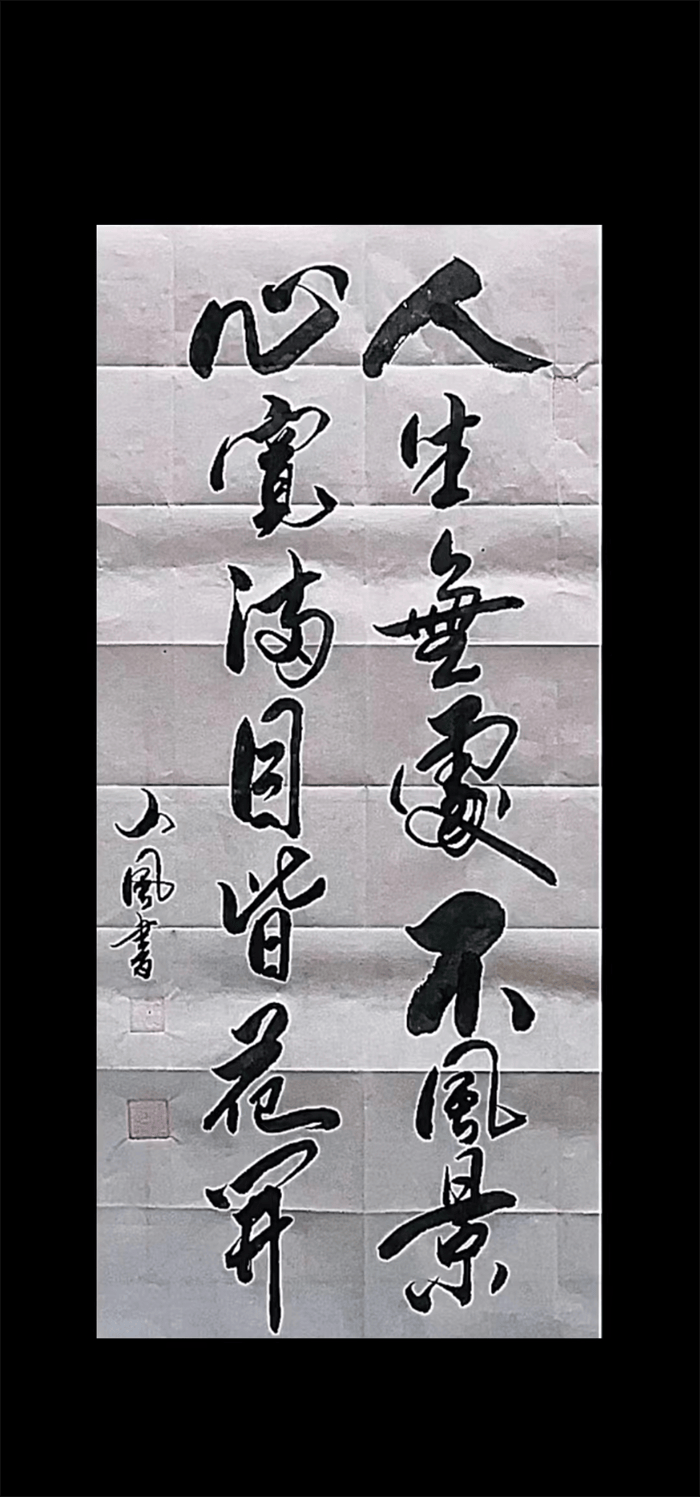 人生無處不風景
心寬满目皆花開
人風書